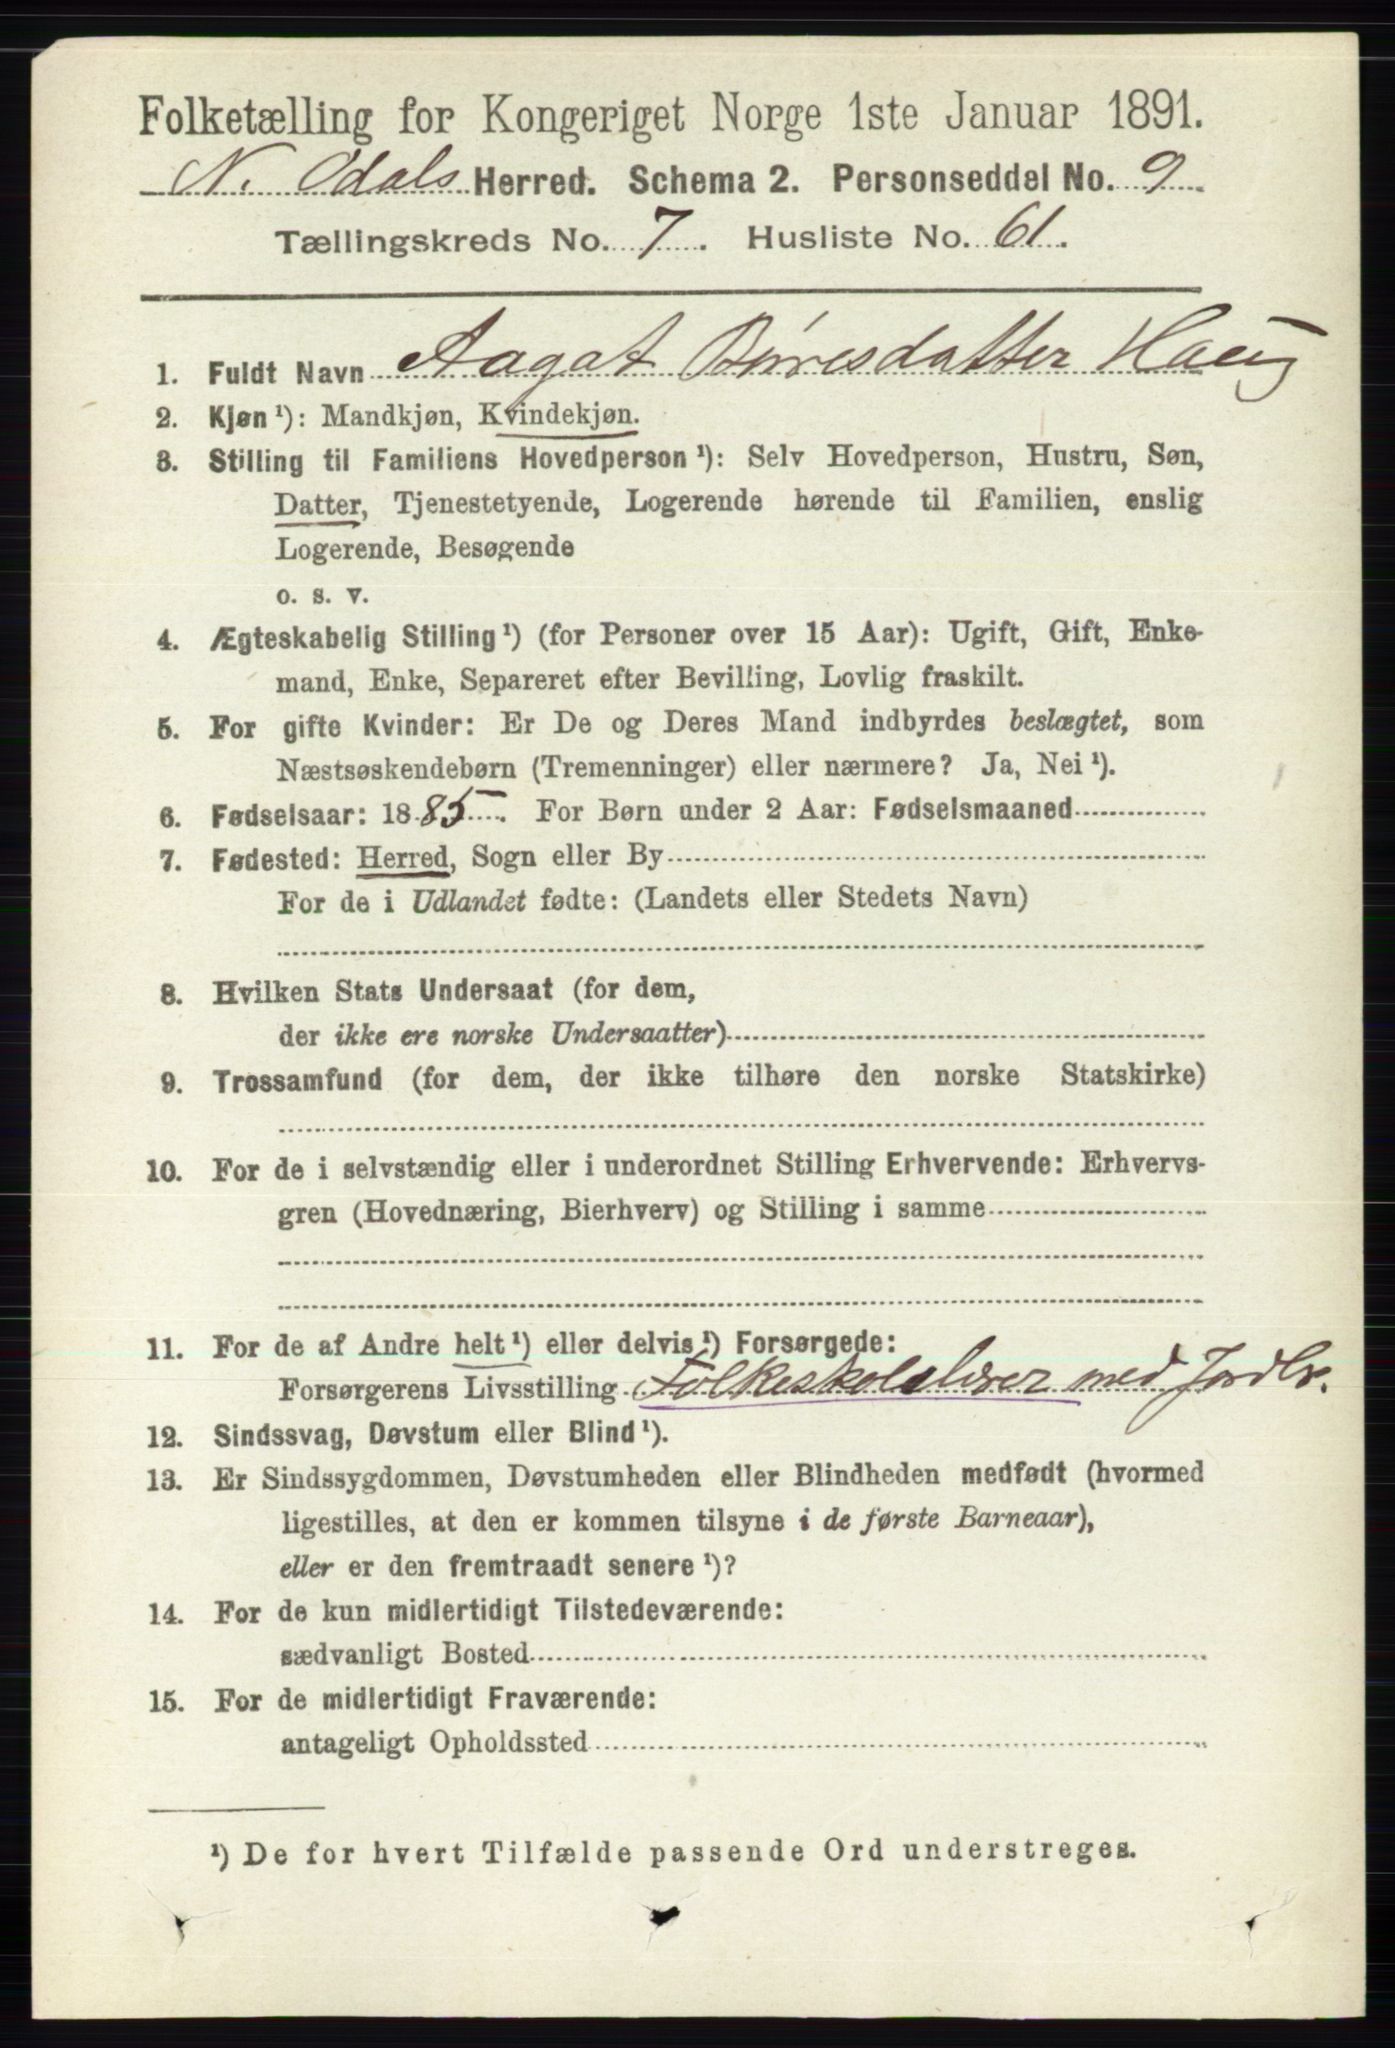 Folketælling for Kongeriget Norge 1ste Januar 1891.
N. Odals Herred. Schema 2. Personseddel No. 9
Tællingskreds No. 7. Husliste No. 61.
1. Fuldt Navn Aagot Børesdatter Haug
2. Kjøn ¹): Mandkjøn, Kvindekjøn.
3. Stilling til Familiens Hovedperson ¹): Selv Hovedperson, Hustru, Søn,
Datter, Tjenestetyende, Logerende hørende til Familien, enslig
Logerende, Besøgende
o. s. v.
4. Ægteskabelig Stilling ¹) (for Personer over 15 Aar): Ugift, Gift, Enke-
mand, Enke, Separeret efter Bevilling, Lovlig fraskilt.
5. For gifte Kvinder: Er De og Deres Mand indbyrdes beslægtet, som
Næstsøskendebørn (Tremenninger) eller nærmere? Ja, Nei ¹).
6. Fødselsaar: 1885. For Børn under 2 Aar: Fødselsmaaned
7. Fødested: Herred, Sogn eller By
For de i Udlandet fødte: (Landets eller Stedets Navn)
8. Hvilken Stats Undersaat (for dem,
der ikke ere norske Undersaatter)
9. Trossamfund (for dem, der ikke tilhøre den norske Statskirke)
10. For de i selvstændig eller i underordnet Stilling Erhvervende: Erhvervs-
gren (Hovednæring, Bierhverv) og Stilling i samme
11. For de af Andre helt ¹) eller delvis ¹) Forsørgede:
Forsørgerens Livsstilling Folkeskolelærer med Jordbr.
12. Sindssvag, Døvstum eller Blind ¹).
13. Er Sindssygdommen, Døvstumheden eller Blindheden medfødt (hvormed
ligestilles, at den er kommen tilsyne i de første Barneaar),
eller er den fremtraadt senere ¹)?
14. For de kun midlertidigt Tilstedeværende:
sædvanligt Bosted
15. For de midlertidigt Fraværende:
antageligt Opholdssted
¹) De for hvert Tilfælde passende Ord understreges.